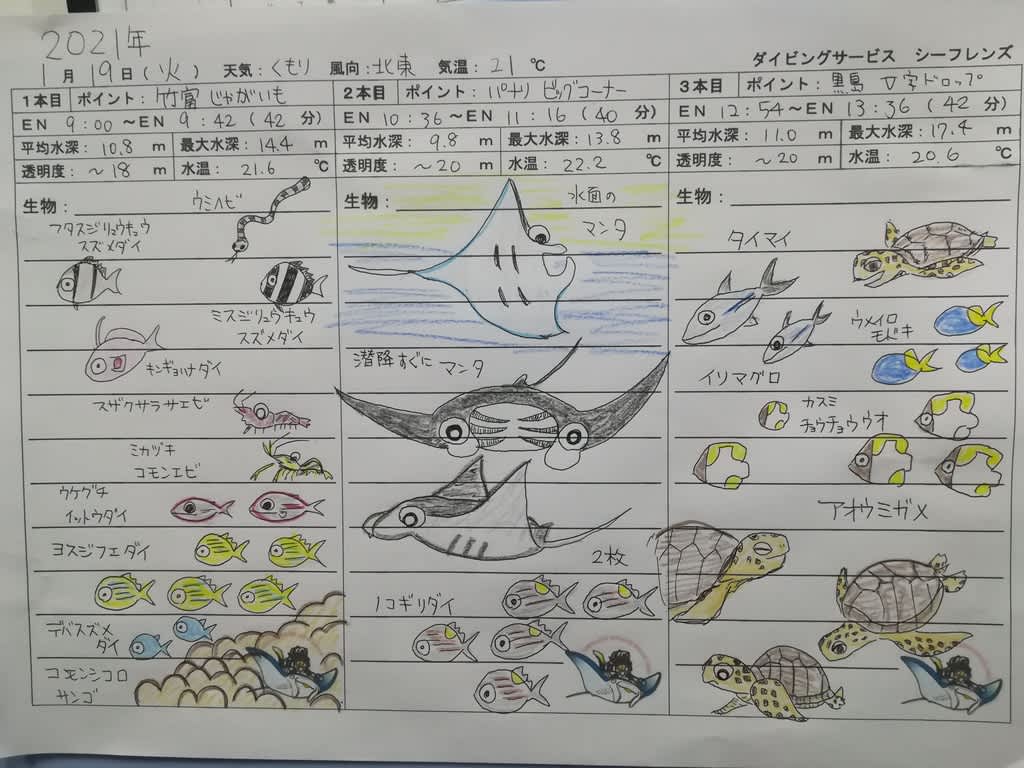 2021年
1月19日(火) 天気:くもり 風向:北東 気温:21℃
ダイビングサービス シーフレンズ
1本目 ポイント:竹富 じゃがいも
EN 9:00 ~EN 9:42 (42分)
平均水深:10.8 m 最大水深:14.4 m
透明度:~18 m 水温:21.6 ℃
生物:
ウミヘビ
フタスジリュウキュウ
スズメダイ
ミスジリュウキュウ
スズメダイ
キンギョハナダイ
スザクサラサエビ
ミカヅキ
コモンエビ
ウケグチ
イットウダイ
ヨスジフエダイ
デバスズメ
ダイ
コモンシコロ
サンゴ
2本目 ポイント:パナリ ビッグコーナー
EN 10:36~EN 11:16 (40分)
平均水深:9.8 m 最大水深:13.8 m
透明度:~20 m 水温:22.2 ℃
生物:
水面の
マンタ
潜降すぐに マンタ
2枚
ノコギリダイ
3本目 ポイント:黒島 V字ドロップ
EN 12:54~EN 13:36 (42分)
平均水深:11.0 m 最大水深:17.4 m
透明度:~20 m 水温:20.6 ℃
生物:
タイマイ
ウメイロ
モドキ
イソマグロ
カスミ
チョウチョウウオ
アオウミガメ